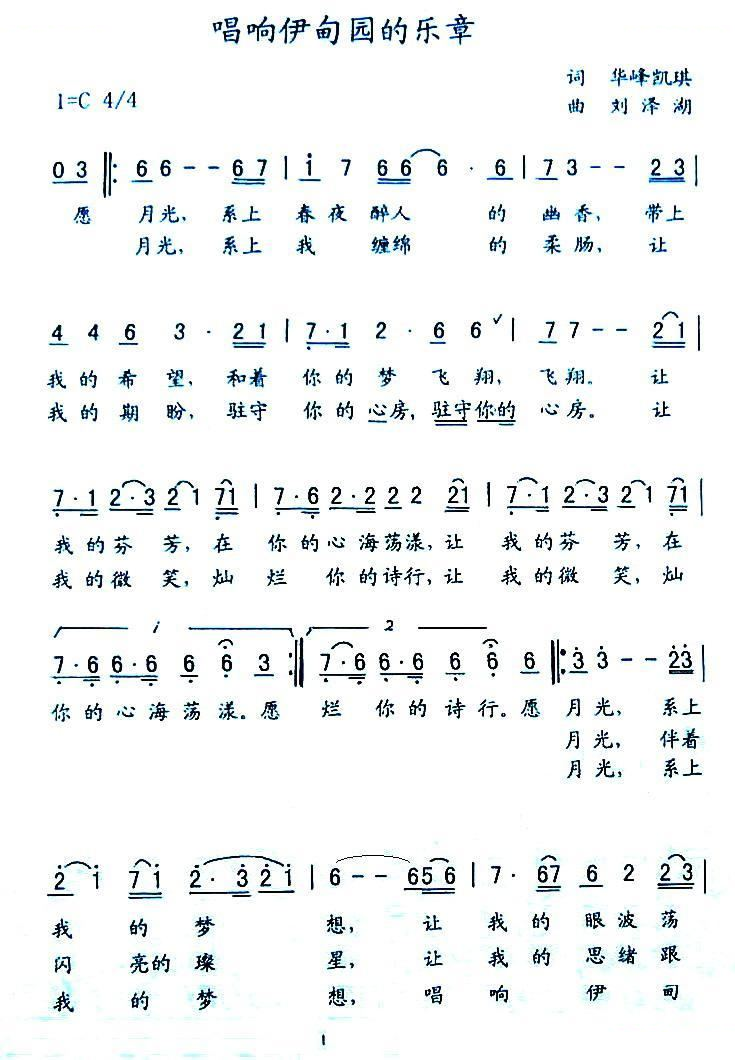 唱响伊甸园的乐章
词 华峰凯琪
1=C 4/4
曲 刘泽湖
0 3 |: 6 6 - - 6 7 | i 7 6 6 6 · 6 | 7 3 - - 2 3 |
愿 月光, 系上 春夜 醉人 的 幽香, 带上
月光, 系上 我 缠绵 的 柔肠, 让
4 4 6 3 · 2 1 | 7 · 1 2 · 6 6 ✓ | 7 7 - - 2 1 |
我的希望, 和着 你的梦飞翔, 飞翔。 让
我的期盼, 驻守 你的心房, 驻守你的 心房。 让
7 · 1 2 · 3 2 1 7 1 | 7 · 6 2 · 2 2 2 2 1 | 7 · 1 2 · 3 2 1 7 1 |
我的芬芳, 在 你的心海荡漾, 让 我的芬芳, 在
我的微笑, 灿烂 你的诗行, 让 我的微笑, 灿
1 2
7 · 6 6 · 6 6 6 3 :| 7 · 6 6 · 6 6 6 6 |: 3 3 - - 2 3 |
你的心海荡漾。愿 烂你的诗行。愿 月光, 系上
月光, 伴着
月光, 系上
2 i 7 i 2 · 3 2 i | 6 - - 6 5 6 | 7 · 6 7 6 2 2 3 |
我 的 梦 想, 让 我的 眼波荡
闪 亮的 璨 星, 让 我的 思绪跟
我 的 梦 想, 唱 响 伊 甸
1